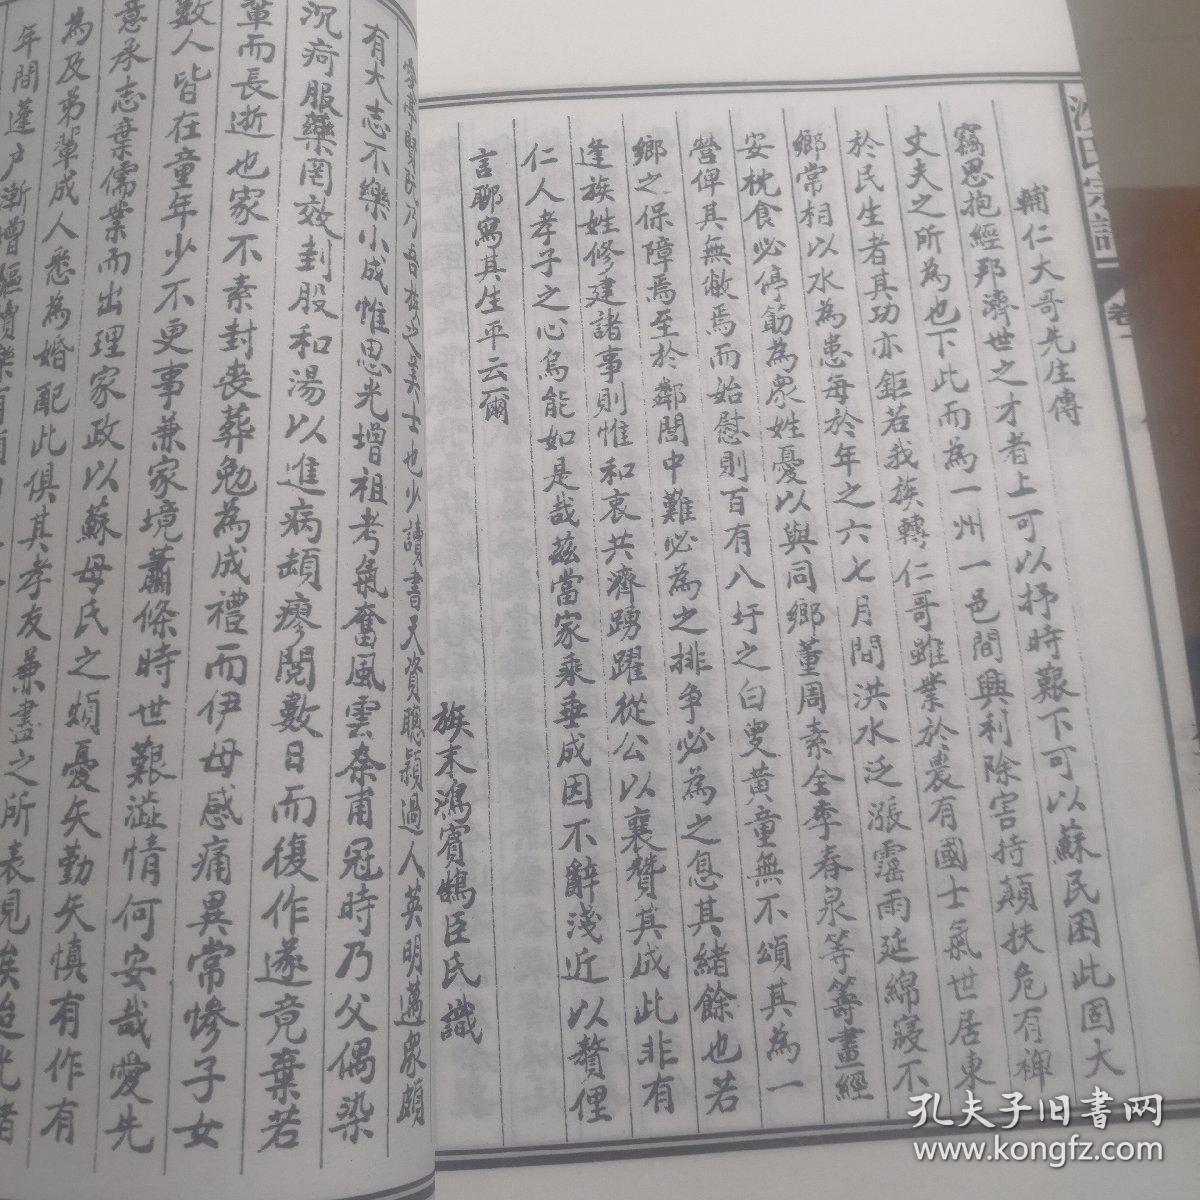 氏宗譜
卷
輔仁大哥先生傳
竊思抱經邦濟世之才者上可以抒時艱下可以蘇民困此固大
丈夫之所為也下此而為一州一邑間興利除害持顛扶危有裨
於民生者其功亦鉅若我族轉仁哥雖業於農有國士氣世居東
鄉常相以水為患每於年之六七月間洪水泛漲霪雨延綿寢不
安枕食必停筯為眾姓憂以與同鄉董周素全季春泉等籌畫經
營俾其無敝焉而始慰則百有八圩之白叟黃童無不頌其為一
鄉之保障焉至於鄰閭中難必為之排爭必為之息其緒餘也若
逢族姓修建諸事則惟和衷共濟踴躍從公以襄贊其成此非有
仁人孝子之心烏能如是哉茲當家乘垂成因不辭淺近以贅俚
言聊寫其生平云爾
族末鴻賓鵠臣氏識
吾族之 士也少讀書天資聰穎過人英明邁眾頗
有大志不樂小成惟思光增祖考氣奮風雲奈甫冠時乃父偶染
沉疴服藥罔效封股和湯以進病頡瘳閱數日而復作遂竟棄若
輩而長逝也家不素封喪葬勉為成禮而伊母感痛異常慘子女
數人皆在童年少不更事兼家境蕭條時世艱澁情何安哉愛先
意承志棄儒業而出理家政以蘇母氏之煩憂矢勤矢慎有作有
為及弟輩成人悉為婚配此俱其孝友兼盡之所表見
年間蓬户漸增
孔夫子旧书网
www.kongfz.com